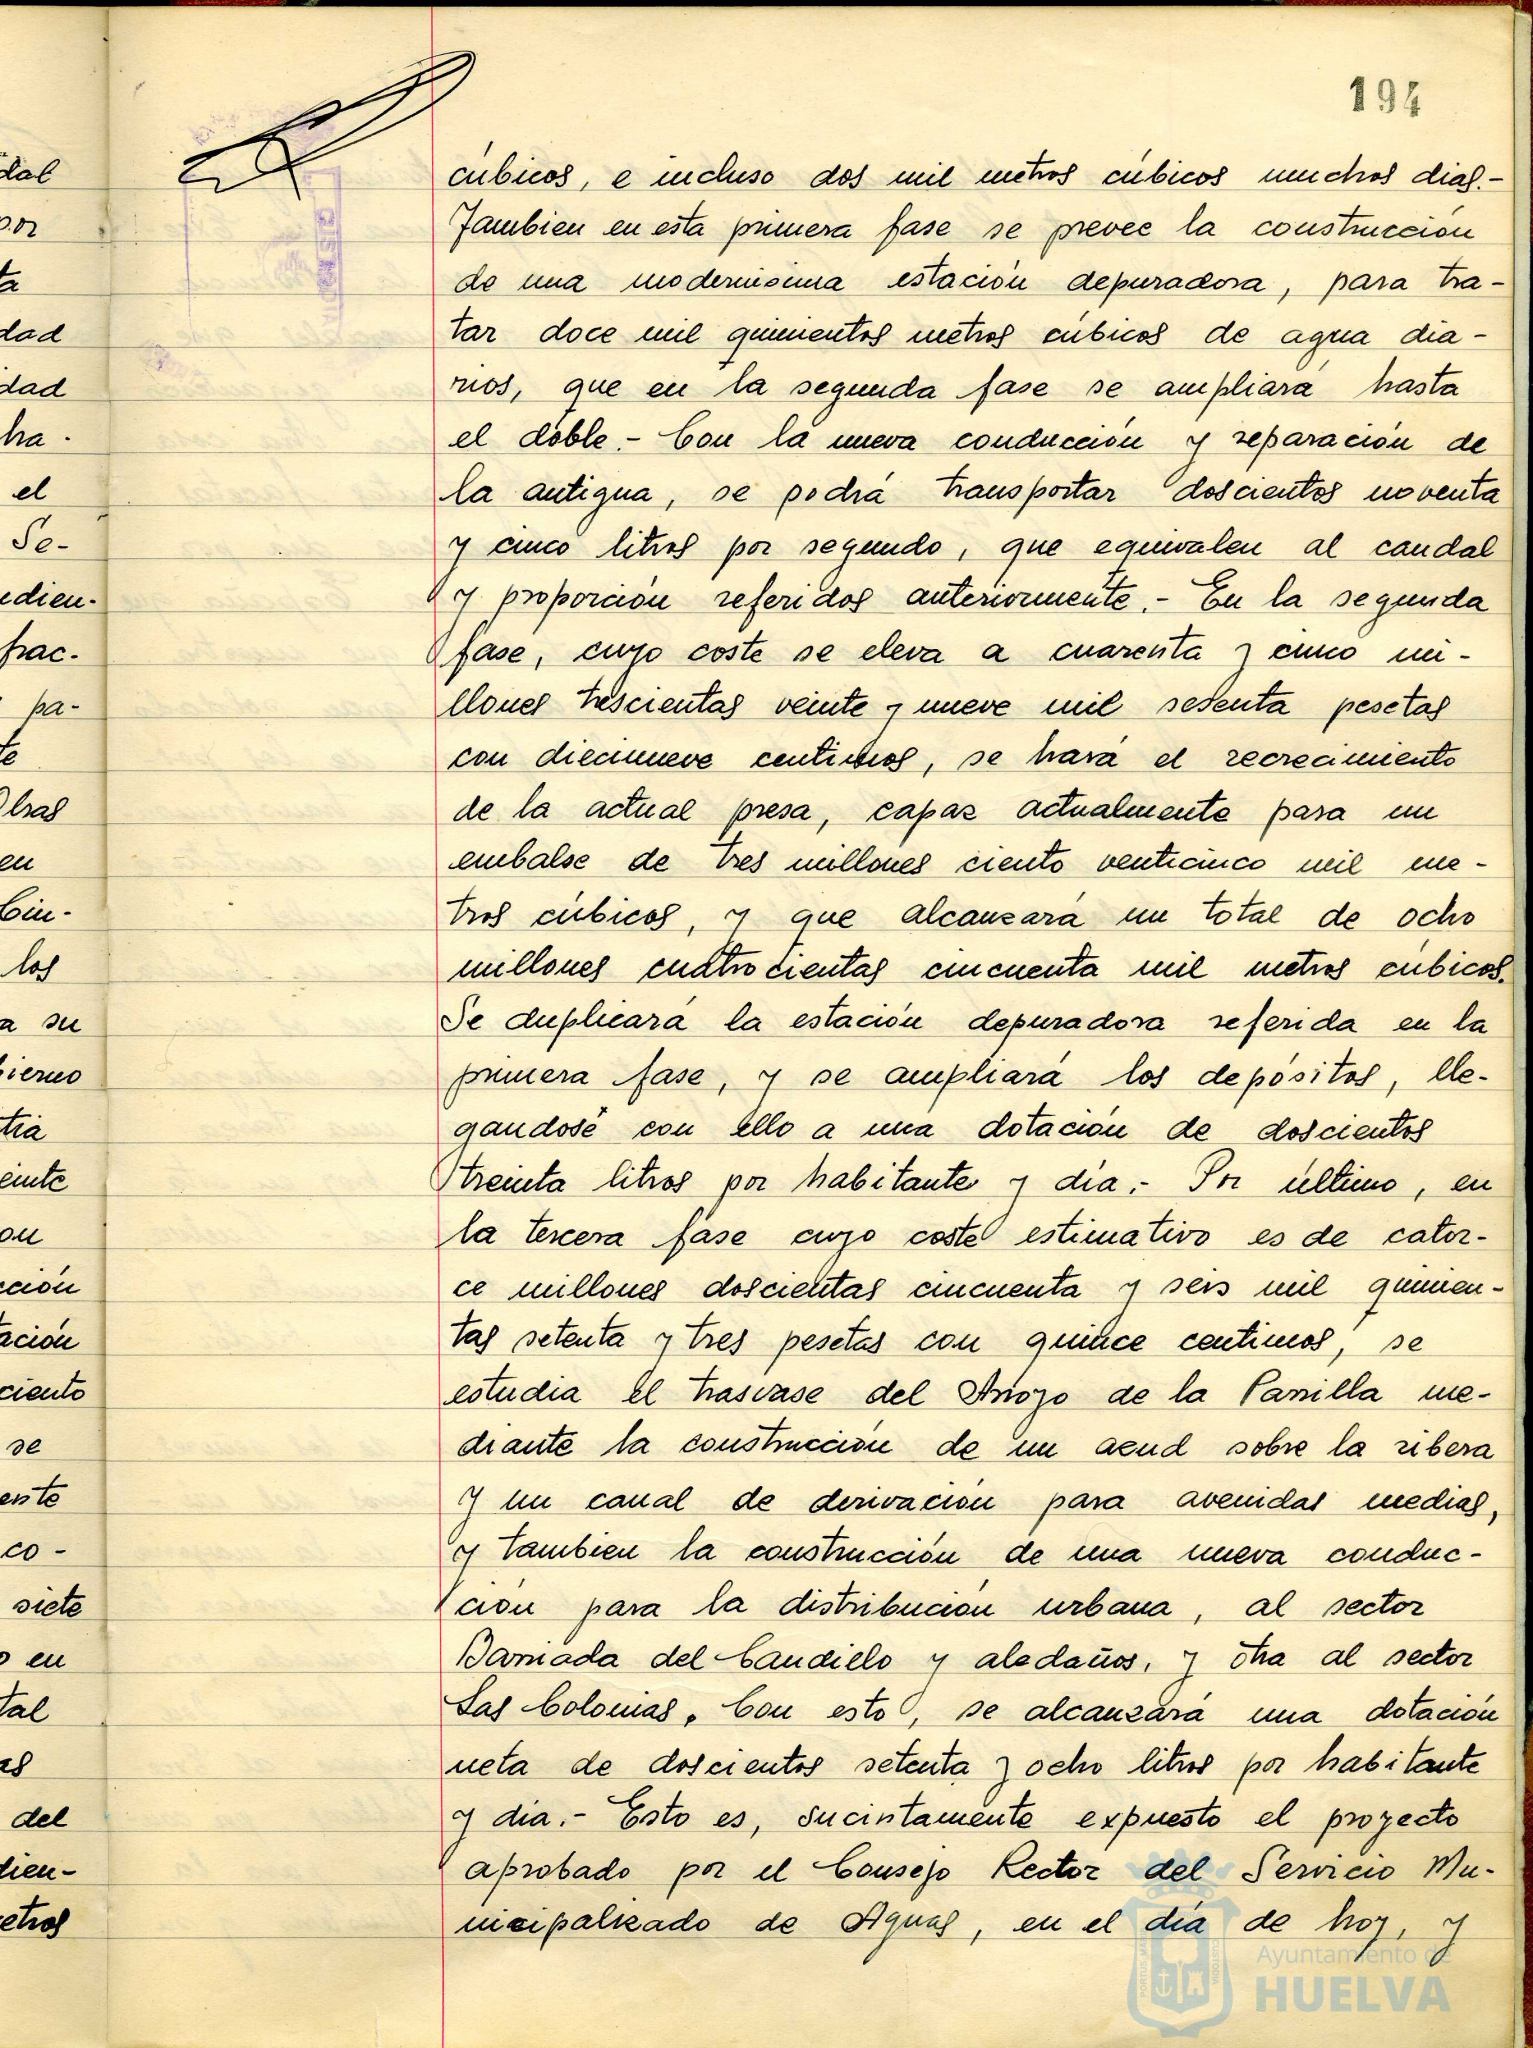 194
cúbicos, e incluso dos mil metros cúbicos muchos dias.-
Tambien en esta primera fase se prevee la construcción
de una modernisima estación depuradora, para tra-
tar doce mil quinientos metros cúbicos de agua dia-
rios, que en la segunda fase se ampliará hasta
el doble.- Con la nueva conducción y reparación de
la antigua, se podrá transportar doscientos noventa
y cinco litros por segundo, que equivalen al caudal
y proporción referidos anteriormente.- En la segunda
fase, cuyo coste se eleva a cuarenta y cinco mi-
llones trescientas veinte y nueve mil sesenta pesetas
con diecinueve centimos, se hará el recrecimiento
de la actual presa, capaz actualmente para un
embalse de tres millones ciento venticinco mil me-
tros cúbicos, y que alcanzará un total de ocho
millones cuatrocientas cincuenta mil metros cúbicos.
Se duplicará la estación depuradora referida en la
primera fase, y se ampliará los depósitos, lle-
gandosé con ello a una dotación de doscientos
treinta litros por habitante y día.- Por último, en
la tercera fase cuyo coste estimativo es de cator-
ce millones doscientas cincuenta y seis mil quinien-
tas setenta y tres pesetas con quince centimos, se
estudia el trasvase del Arroyo de la Parrilla me-
diante la construcción de un azud sobre la ribera
y un canal de derivación para avenidas medias,
y tambien la construcción de una nueva conduc-
ción para la distribución urbana, al sector
Barriada del Caudillo y aledaños, y otra al sector
Las Colonias. Con esto, se alcanzará una dotación
neta de doscientos setenta y ocho litros por habitante
y día.- Esto es, sucintamente expuesto el proyecto
aprobado por el Consejo Rector del Servicio Mu-
nicipalizado de Aguas, en el día de hoy, y
Ayuntamiento de
HUELVA
dal
por
ta
dad
dad
ha.
el
Se-
edien-
frac-
pa-
te
Obras
en
Cin-
los
a su
bierno
tia
einte
on
cción
tación
ciento
se
ente
co-
siete
o en
tal
as
del
dien-
etros